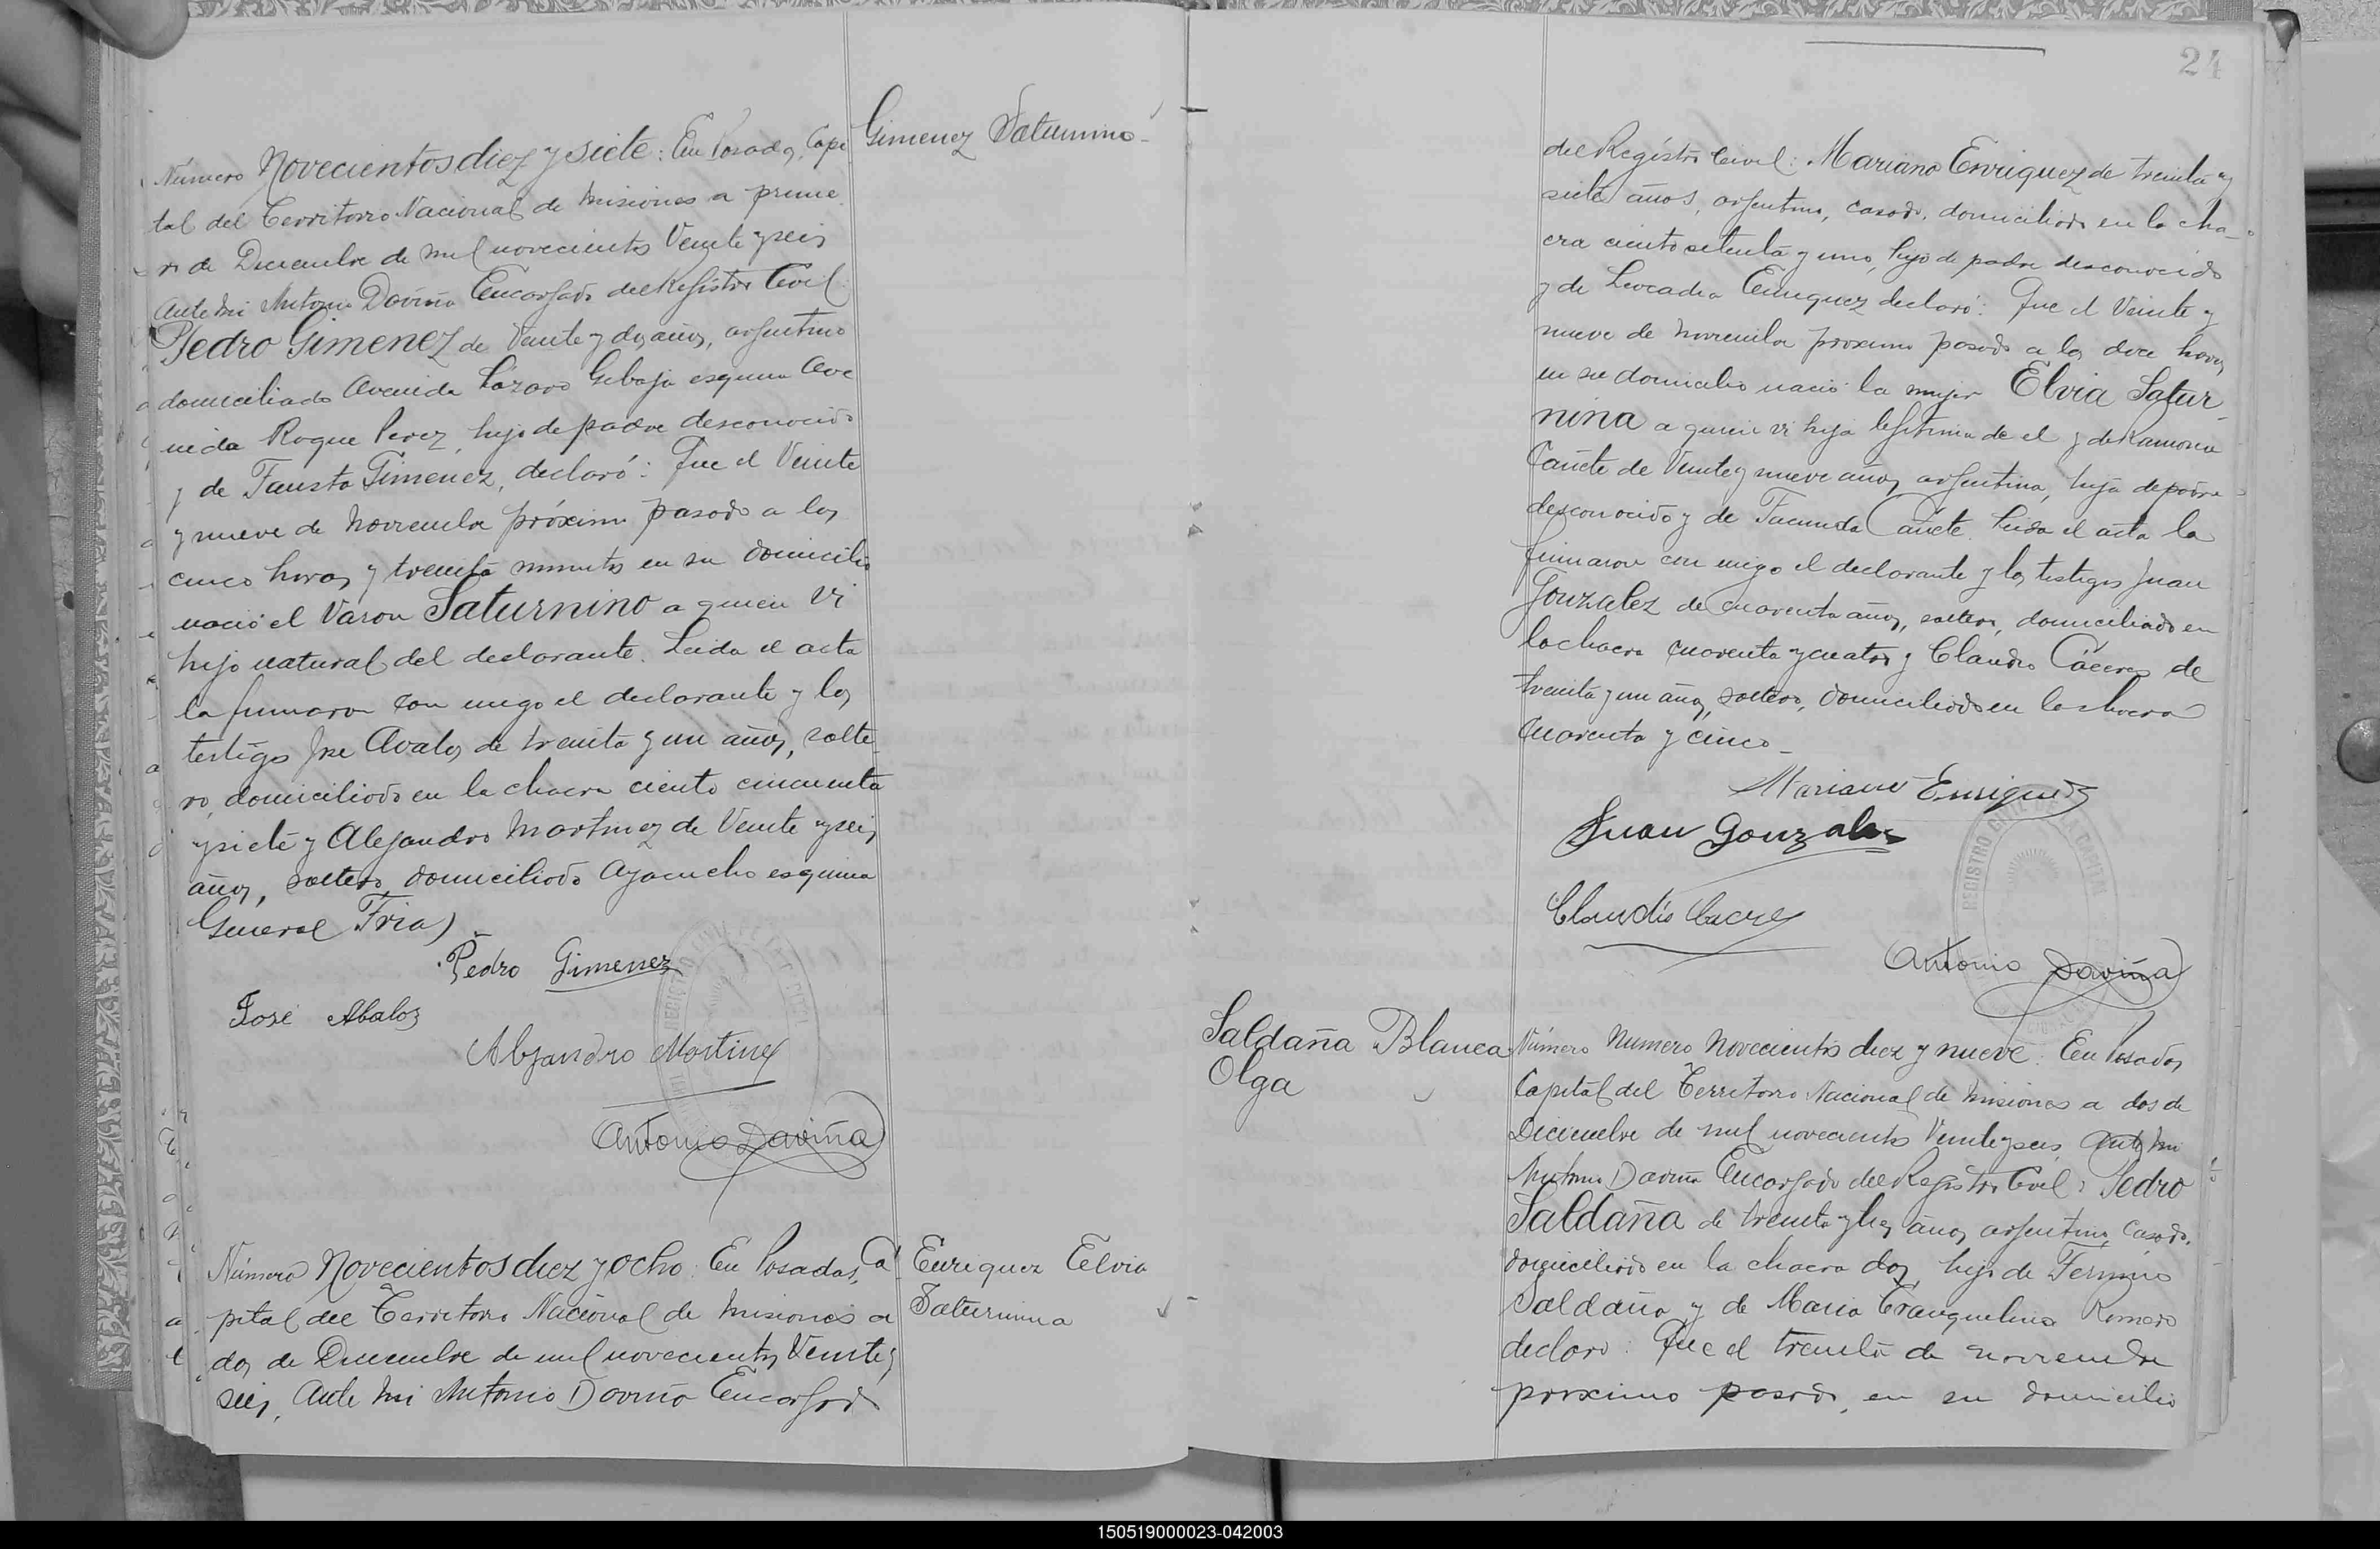 Gimenez Saturnino
Número Novecientos diez y siete: En Posadas, Capi
tal del Territorio Nacional de Misiones a prime
ro de Diciembre de mil novecientos Veinte y seis
ante mi Antonio Daviña Encargado del Registro Civil
Pedro Gimenez de Veinte y dos años, argentino
domiciliado Avenida Lázaro Gibaja esquina Ave
nida Roque Perez, hijo de padre desconocido
y de Fausta Gimenez, declaró: Que el Veinte
y nueve de Noviembre próximo pasado a las
cinco horas y treinta minutos en su domicilio
nació el Varon Saturnino a quien vi
hijo natural del declarante. Leida el acta
la firmaron con migo el declarante y los
testigos Jose Avalos de treinta y un años, solte
ro, domiciliado en la chacra ciento cincuenta
y siete y Alejandro Martinez de Veinte y seis
años, soltero, domiciliado Ayacucho esquina
General Frias
Pedro Gimenez
José Abalos
Alejandro Martinez
Antonio Daviña
Enriquez Elvia
Saturnina
Número Novecientos diez y ocho: En Posadas, Ca
pital del Territorio Nacional de Misiones a
dos de Diciembre de mil novecientos Veinte y
seis, Ante mi Antonio Daviña Encargado
24
del Registro Civil: Mariano Enriquez de treinta y
siete años, argentino, casado, domiciliado en la cha-
cra ciento setenta y uno, hijo de padre desconocido
y de Leocadia Enriquez declaró: Que el Veinte y
nueve de Noviembre proximo pasado a las doce horas
en su domicilio nació la mujer Elvia Satur
nina a quien vi hija legitima de el y de Ramona
Cañete de Veinte y nueve años argentina, hija de padre
desconocido y de Facunda Cañete. Leida el acta la
firmaron con migo el declarante y los testigos Juan
Gonzalez de cuarenta años, soltero, domiciliado en
la chacra cuarenta y cuatro y Claudio Cáceres de
treinta y un años, soltero, domiciliado en la chacra
cuarenta y cinco
Mariano Enriquez
Juan Gonzalez
Claudio Cacere
Antonio Daviña
Saldaña Blanca
Olga
Número Numero Novecientos diez y nueve: En Posadas
Capital del Territorio Nacional de Misiones a dos de
Diciembre de mil novecientos Veinte y seis, Ante mi
Antonio Daviña Encargado del Registro Civil: Pedro
Saldaña de treinta y tres años argentino, casado,
domiciliado en la chacra dos, hijo de Fermino
Saldaña y de Maria Tranquelina Romero
declaro: Que el treinta de noviembre
proximo pasado, en su domicilio
150519000023-042003